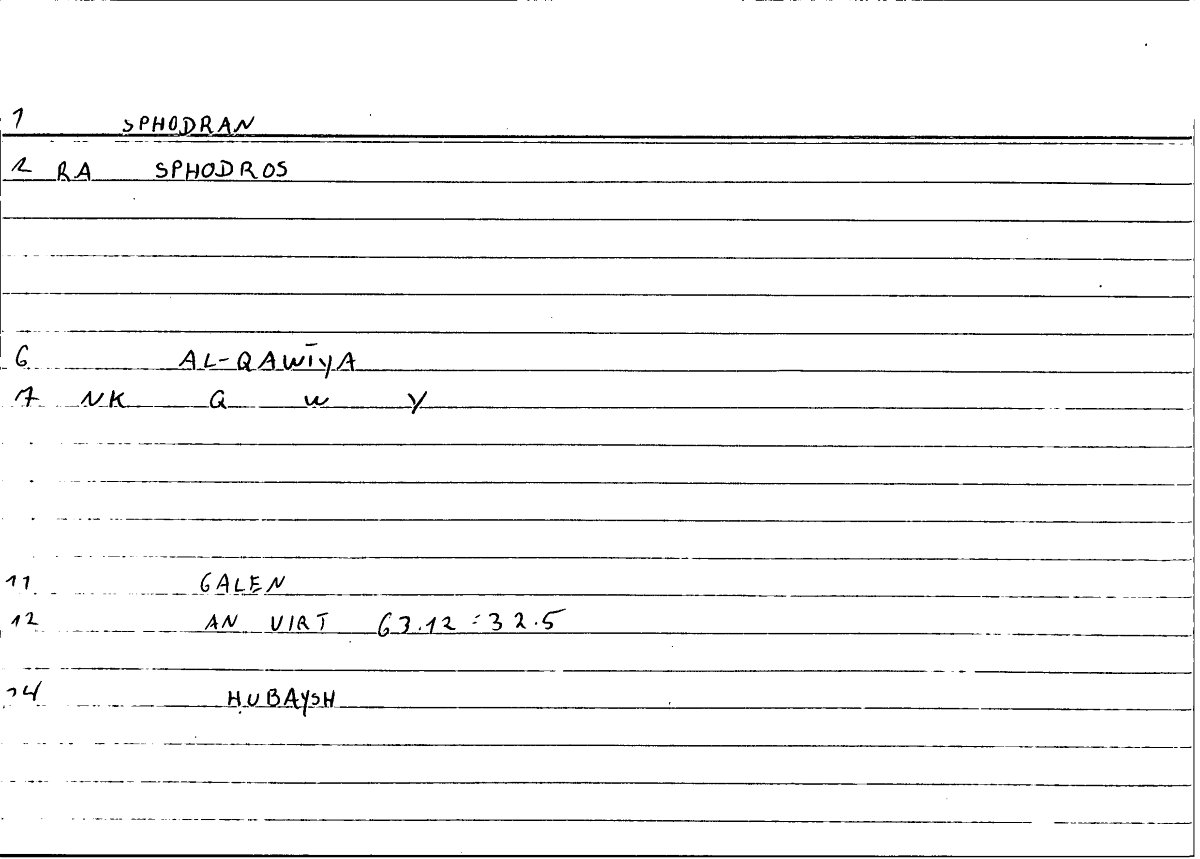 1 SPHODRAN
2 RA SPHODROS
6 AL-QAWĪYA
7 NK Q W Y
11 GALEN
12 AN VIRT 63.12 = 32.5
14 ḤUBAYSH